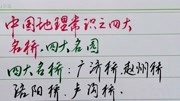 中国地理常识之四大
名桥.四大名园
四大名桥:广济桥.赵州桥
洛阳桥.卢沟桥.